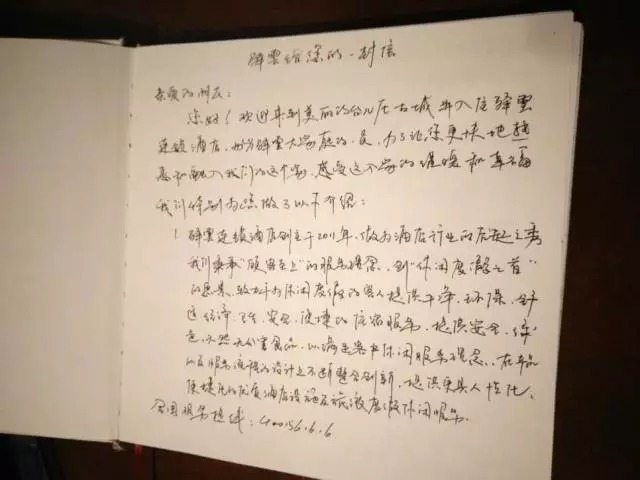 驿云给您的一封信
亲爱的朋友：
您好！欢迎来到美丽的台儿庄古城并入住驿云
连锁酒店，成为驿云大家庭的一员，为了让您更快地熟
悉和融入我们的这个家，感受这个家的温暖和幸福
我们特别为您做了以下介绍：
1 驿云连锁酒店创立于2011年，做为酒店行业的后起之秀
我们秉承"顾客至上"的服务理念，创"休闲度假之首"
的愿景，致力于为休闲度假的客人提供干净、环保、舒
适、经济、卫生、安全、便捷的住宿服务，提供安全、
天然 食品，以满足客户休闲服务理念，在产品
以及服务流程的设计上不断整合创新，提供更具人性化、
便捷化的优质酒店设施及旅游度假休闲服务。
全国服务热线：